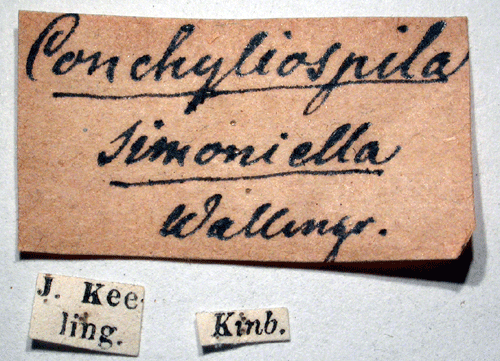 Conchyliospila
simoniella
Wallengr.
J. Kee-
ling.
Kinb.